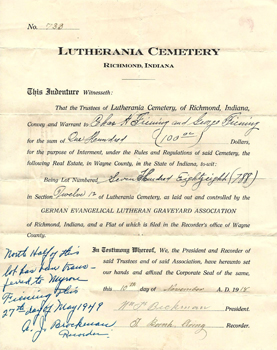 No. 788
LUTHERANIA CEMETERY
RICHMOND, INDIANA
This Indenture Witnesseth:
That the Trustees of Lutherania Cemetery, of Richmond, Indiana,
Convey and Warrant to Chas. and George Fienning
for the sum of One Hundred (100 00) Dollars,
for the purpose of Interment, under the Rules and Regulations of said Cemetery, the
following Real Estate, in Wayne County, in the State of Indiana, to-wit:
Being Lot Numbered Seven Hundred Eighty eight (788)
in Section Twelve 12 of Lutherania Cemetery, as laid out and controlled by the
GERMAN EVANGELICAL LUTHERAN GRAVEYARD ASSOCIATION
of Richmond, Indiana, and a Plat of which is filed in the Recorder's office of
Wayne County.
In Testimony Whereof, We, the President and Recorder
of said Trustees and of said Association, have hereunto set
our hands and affixed the Corporate Seal of the same,
this 10th day of November A. D. 1918
President.
Recorder.
North Half of this
lot has been trans-
ferred to Myron
Fienning this
27th day of May 1949
A. J. Brockman
Recorder